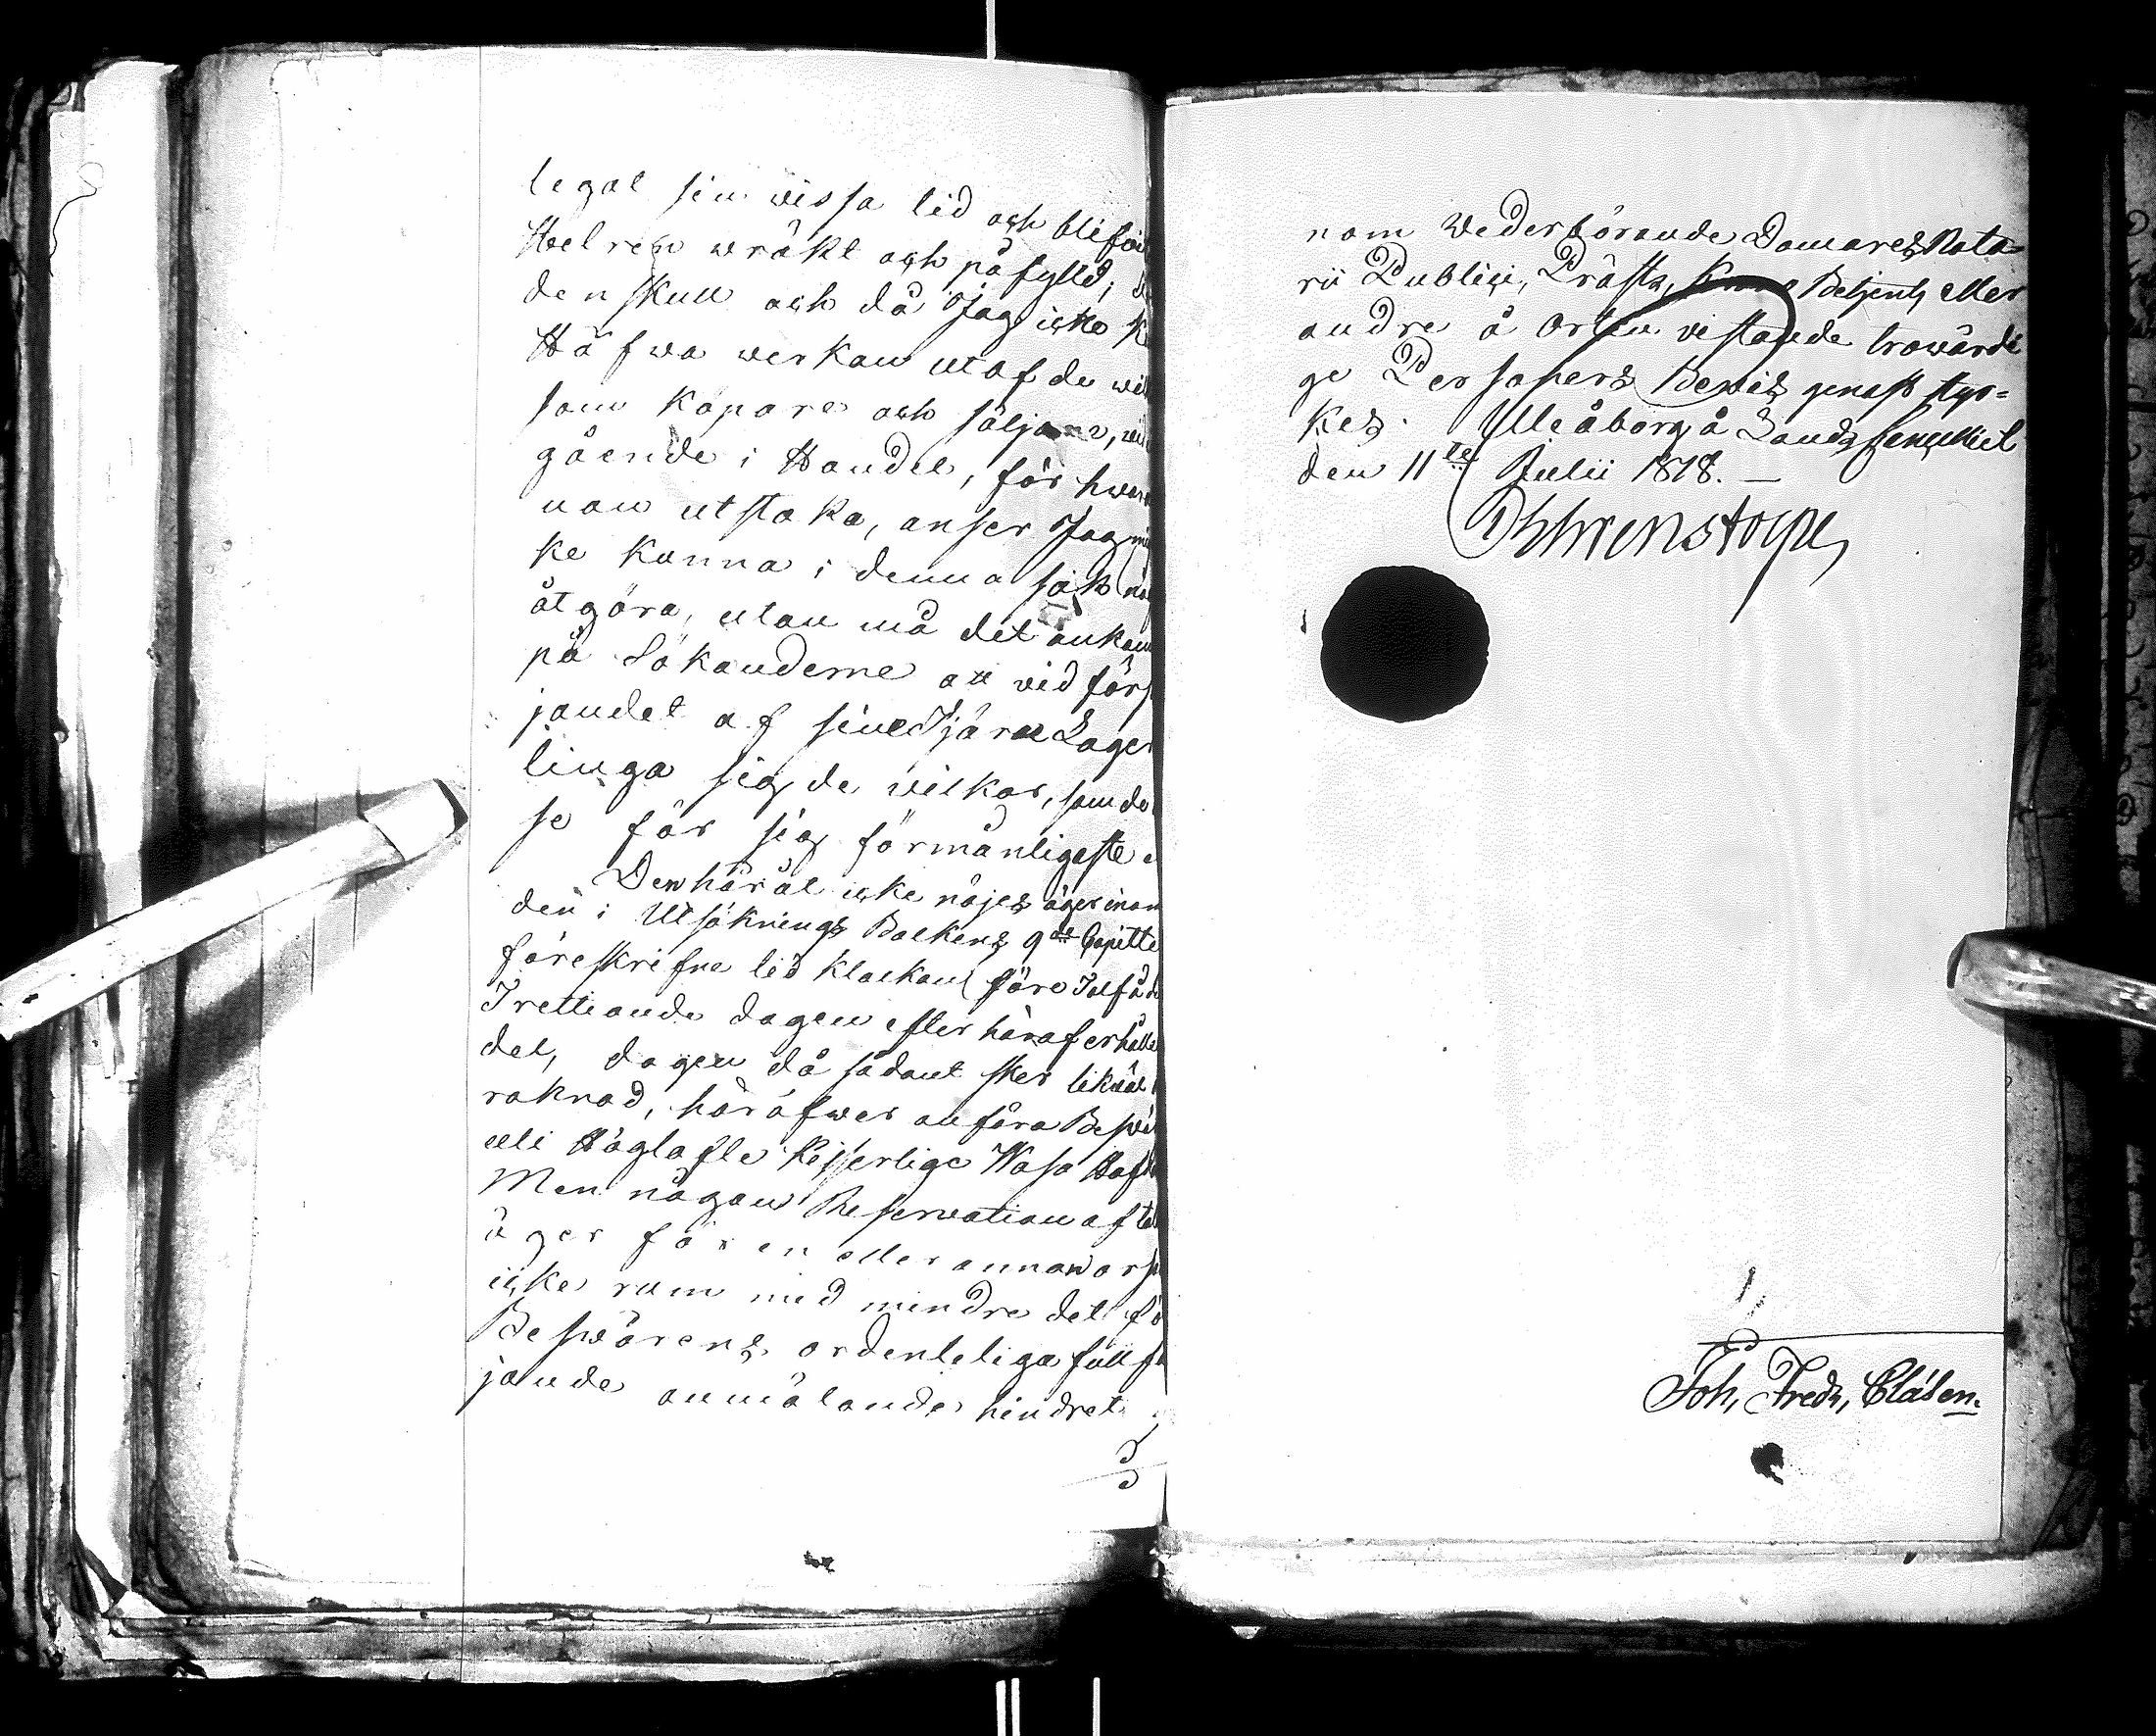 legat sin vissa tid och blifvi
Helren wräkt och påfyld; d
den skull och då Jag icke k
Häfwa werkan utaf de wil
som köpare och säljare, in
gående i Handel, för hwar
nan utstaka, anser Jag mi
ke kunna i denna sak nå
åtgöra, utan må det ankom
på Sökanderne att vid förs
jandet af sine Tjäru Lager
tinga sig de vilkor, som de
se för sig förmånligaste.
Den häråt icke nöjes äger inom
den i Utsöknings Balkens 9de Capittel
föreskrifne tid klockan före Tolf å d
Trettionde dagen efter häraf erhålle
del, dagen då sådant sker likväl
räknad, häröfwer anföra Beswä
uti Höglofle Kejserlige Wasa Hofr
Men någon Reservation af ta
äger för en eller annan ors
icke rum med mindre det fö
Beswärens ordenteliga fullf
jande anmälande hindret
nom Wederbörande Domares Nota-
rii Publici, Prästs, Betjents eller
andre å Orten vistande trowärdi
ge Personers Bewis genast styr-
kes. Uleåborg å Lands Cancelliet
den 11te Julii 1818. —
Ehrenstolpe
Joh. Fredr. Clásen.